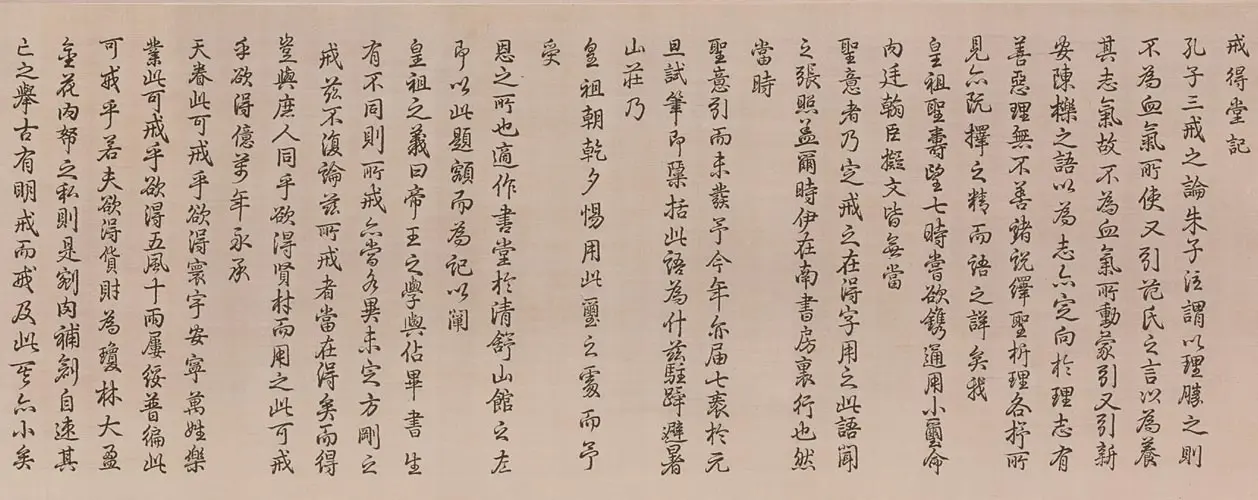 戒得堂記
孔子三戒之論朱子注謂以理勝之則
不為血氣所使又引范氏之言以為養
其志氣故不為血氣所動蒙引又引新
安陳櫟之語以為志亦定向於理志有
善惡理無不善諸說繹聖析理各抒所
見亦既擇之精而語之詳矣我
皇祖聖壽望七時嘗欲鐫通用小璽命
內廷翰臣擬文皆無當
聖意者乃定戒之在得字用之此語聞
之張照蓋爾時伊在南書房裏行也然
當時
聖意引而未發予今年亦屆七袠於元
旦試筆即檃括此語為什茲駐蹕避暑
山莊乃
皇祖朝乾夕惕用此璽之處而予
受
恩之所也適作書堂於清舒山館之左
即以此題額而為記以闡
皇祖之義曰帝王之學與佔畢書生
有不同則所戒亦當各異未定方剛之
戒茲不復論茲所戒者當在得矣而得
豈與庶人同乎欲得賢材而用之此可戒
乎欲得億萬年永承
天眷此可戒乎欲得寰宇安寧萬姓樂
業此可戒乎欲得五風十雨屢綏普徧此
可戒乎若夫欲得貨財為瓊林大盈
金花內帑之私則是剜肉補創自速其
亡之舉古有明戒而戒及此其亦小矣